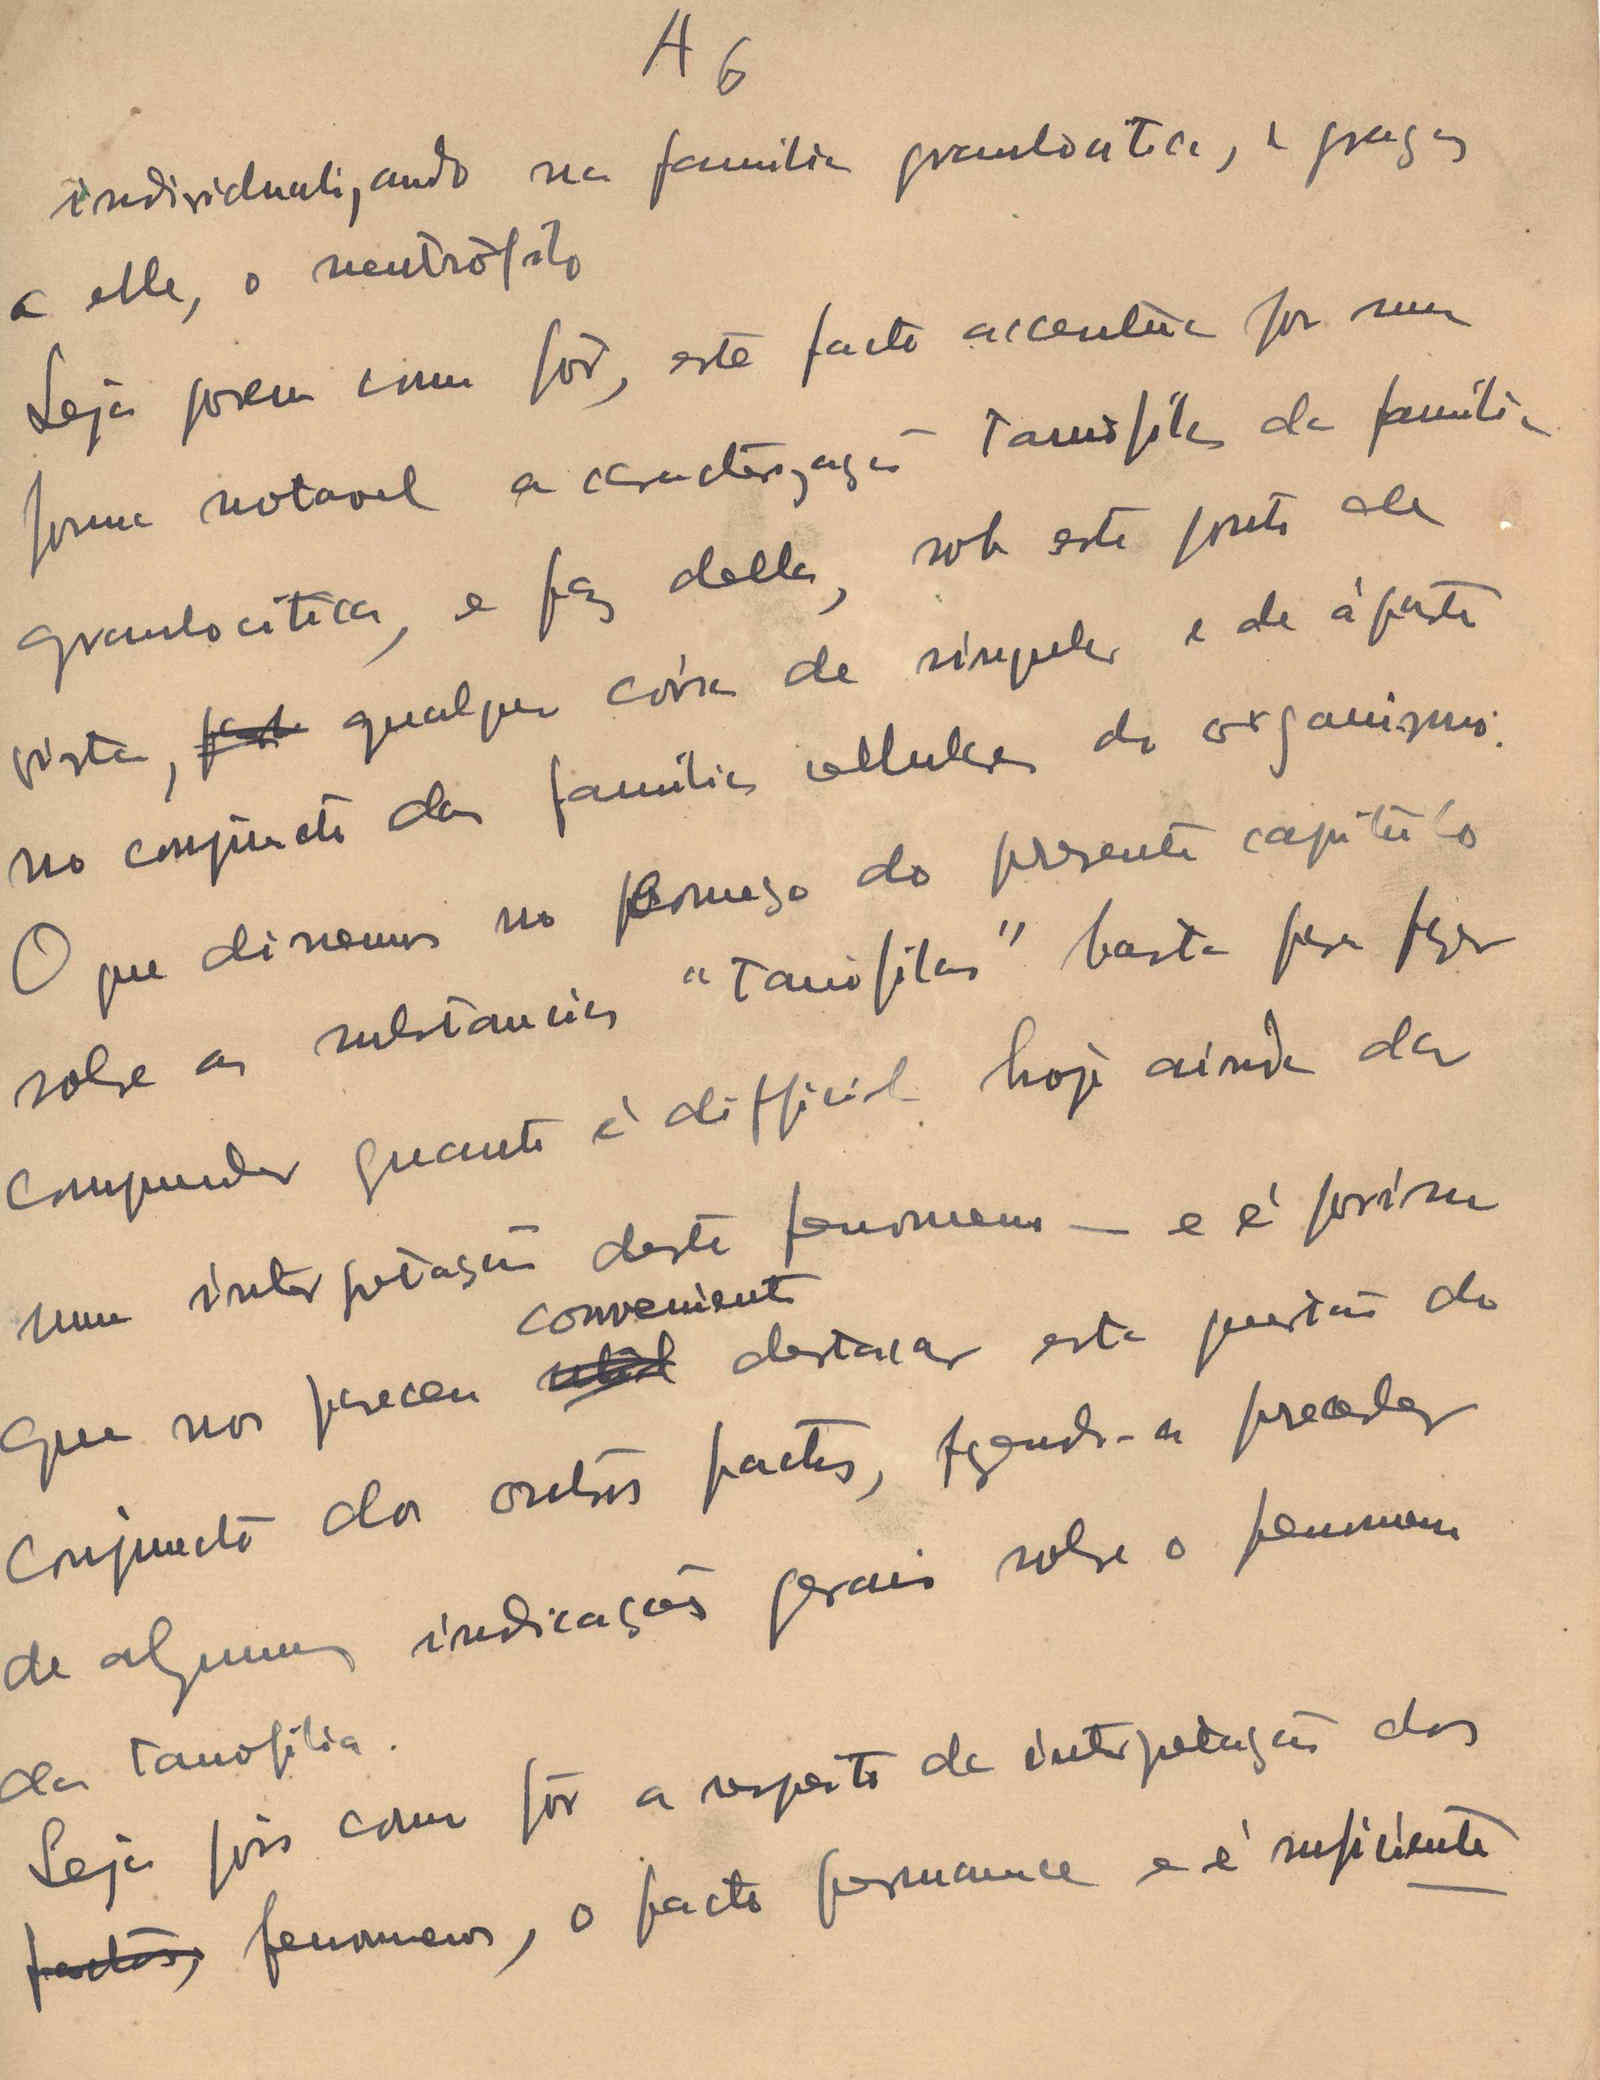 A 6
individualizando na familia granulocitica, e graças
a elle, o neutrófilo
Seja porem como fôr, este facto accentúa por uma
forma notavel a caracterização tanófila da familia
granulocitica, e faz della, sob este ponto de
vista, qualquer coisa de singular e de àparte
no conjuncto das familias cellulares do organismo.
O que dissemos no começo do presente capitulo
sobre as substancias "tanófilas" basta para fazer
comprender quanto é difficil hoje ainda dar
uma interpretação deste fenomeno — e é por isso
conveniente
que nos pareceu util destacar esta questão do
conjuncto dos outros factos, fazendo-a preceder
de algumas indicações gerais sobre o fenomeno
da tanofilia.
Seja pois como fôr a respeito da interpretação dos
factos, fenomenos, o facto permanece e é suficiente